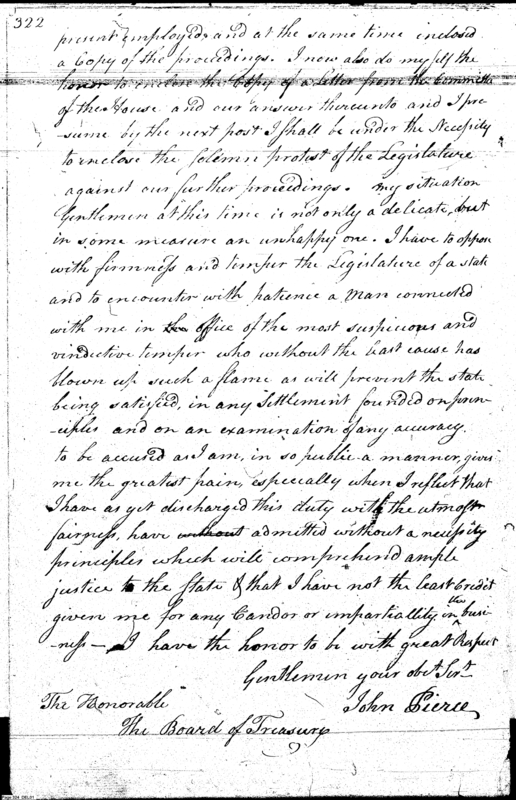 322
present employed, and at the same time inclosed
a Copy of the proceedings. I now also do myself the
honor to enclose the Copy of a Letter from the Committee
of the House and our answer thereunto and I pre-
-sume by the next post I shall be under the Necessity
to enclose the solemn protest of the Legislature
against our further proceedings. My situation
Gentlemen at this time is not only a delicate, but
in some measure an unhappy one. I have to oppose
with firmness and temper the Legislature of a state
and to encounter with patience a Man connected
with me in the office of the most suspicious and
vindictive temper who without the least cause has
blown up such a flame as will prevent the state
being satisfied, in any Settlement founded on prin-
-ciples and on an examination of any accuracy.
to be accused as I am, in so public a manner, gives
me the greatest pain, especially when I reflect that
I have as yet discharged this duty with the utmost
fairness, have without admitted without a necessity
principles which will comprehend ample
justice to the State & that I have not the least Credit
given me for any Candor or impartiallity in the busi-
ness — I have the honor to be with great Respect
Gentlemen your obt Servt
John Pierce
The Honorable
The Board of Treasury